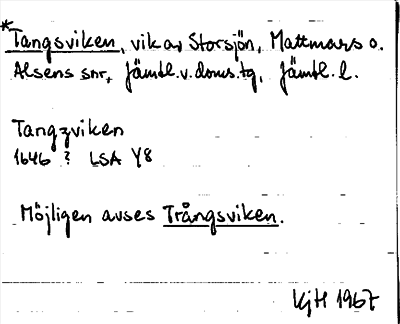 *Tangsviken, vik av Storsjön, Mattmars o.
Alsens snr, Jämtl.v.doms.tg, Jämtl. l.
Tangzviken
1646 ? LSA Y8
Möjligen avses Trångsviken.
KjH 1967